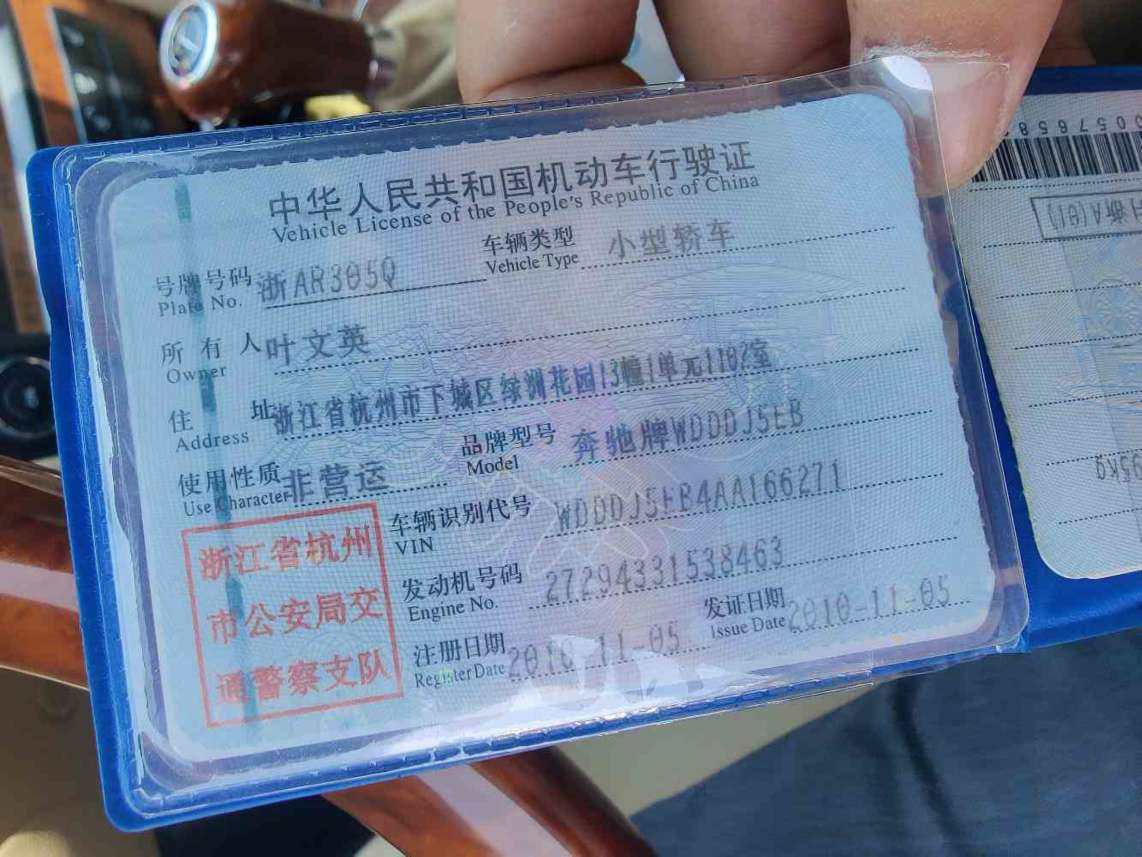 中华人民共和国机动车行驶证
Vehicle License of the People's Republic of China
号牌号码 浙AR305Q 车辆类型 小型轿车
Plate No. Vehicle Type
所有人 叶文英
Owner
住址 浙江省杭州市下城区绿洲花园13幢1单元1102室
Address
使用性质 非营运 品牌型号 奔驰牌WDDDJ5EB
Use Character Model
车辆识别代号 WDDDJ5EB4AA166271
VIN
发动机号码 27294331538463
Engine No.
注册日期 2010-11-05 发证日期 2010-11-05
Register Date Issue Date
浙江省杭州
市公安局交
通警察支队